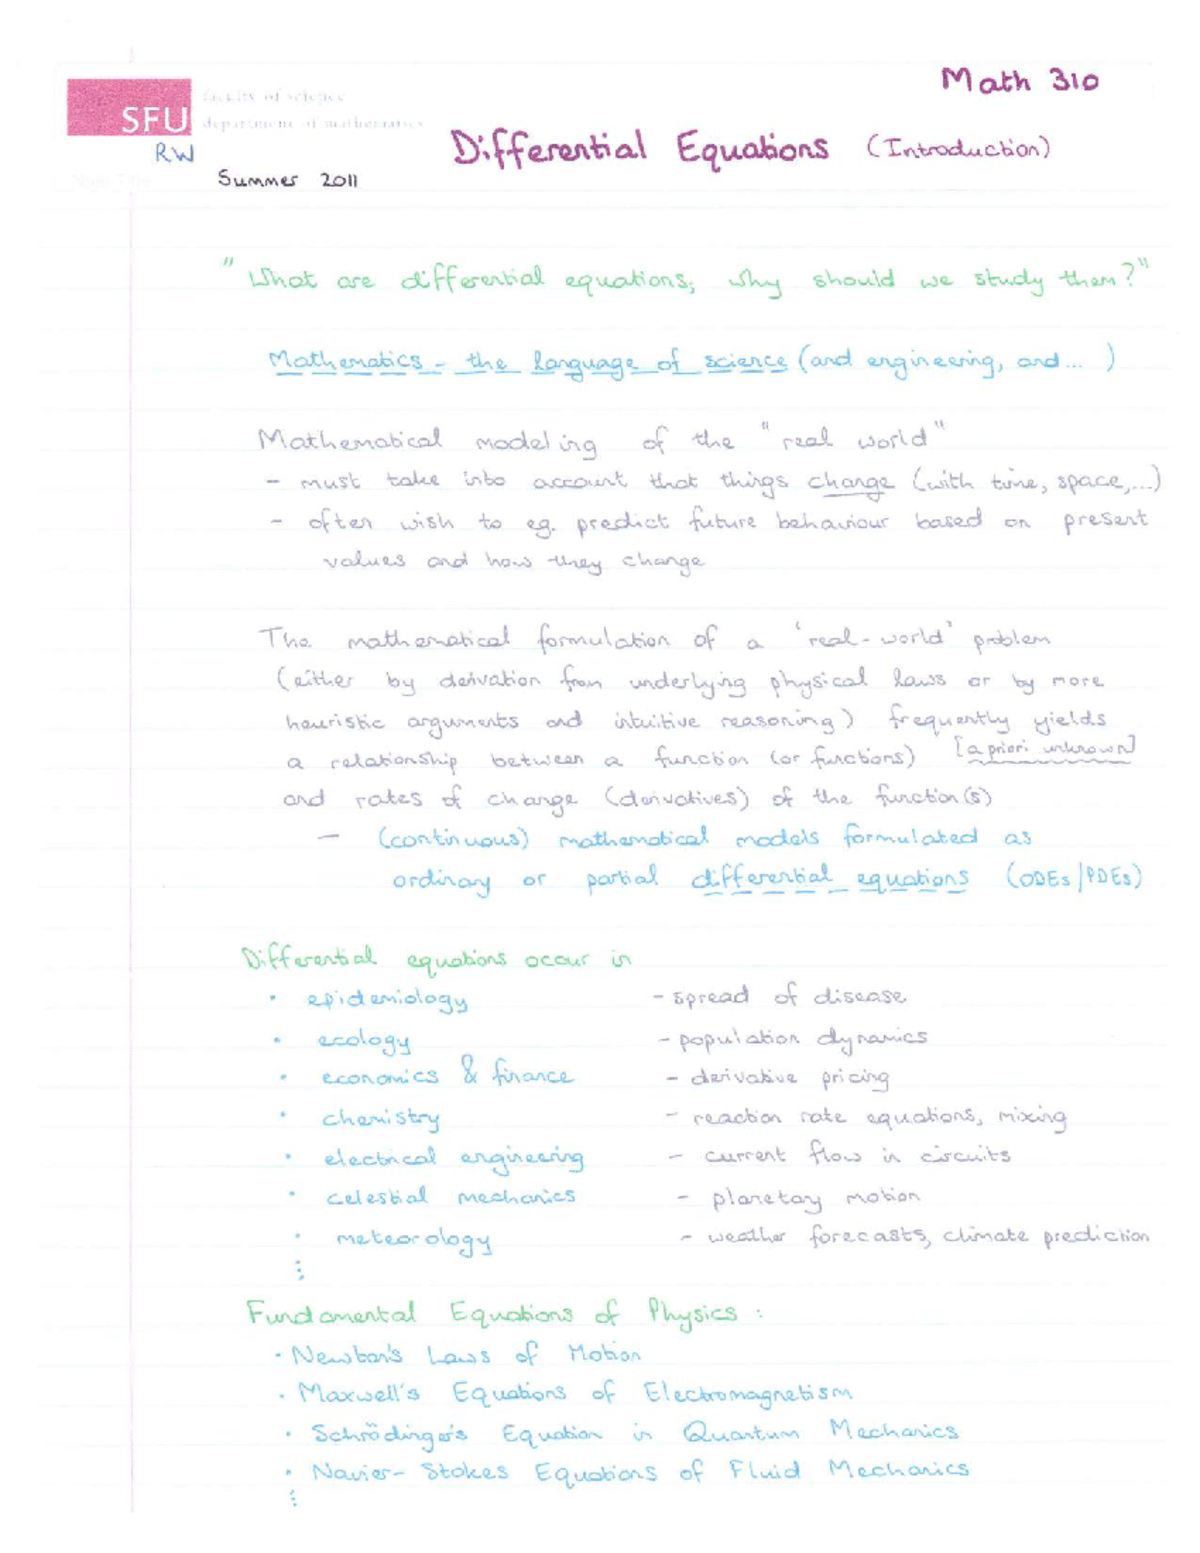 Math 310
SFU
faculty of science
department of mathematics
RW
Differential Equations (Introduction)
Summer 2011
"What are differential equations; why should we study them?"
Mathematics - the language of science (and engineering, and... )
Mathematical modeling of the "real world"
- must take into account that things change (with time, space,...)
- often wish to eg. predict future behaviour based on present
values and how they change
The mathematical formulation of a 'real-world' problem
(either by derivation from underlying physical laws or by more
heuristic arguments and intuitive reasoning) frequently yields
a relationship between a function (or functions) [a priori unknown]
and rates of change (derivatives) of the function(s)
- (continuous) mathematical models formulated as
ordinary or partial differential equations (ODEs/PDEs)
Differential equations occur in
• epidemiology - spread of disease
• ecology - population dynamics
• economics & finance - derivative pricing
• chemistry - reaction rate equations, mixing
• electrical engineering - current flow in circuits
• celestial mechanics - planetary motion
• meteorology - weather forecasts, climate prediction
⋮
Fundamental Equations of Physics :
• Newton's Laws of Motion
• Maxwell's Equations of Electromagnetism
• Schrödinger's Equation in Quantum Mechanics
• Navier-Stokes Equations of Fluid Mechanics
⋮